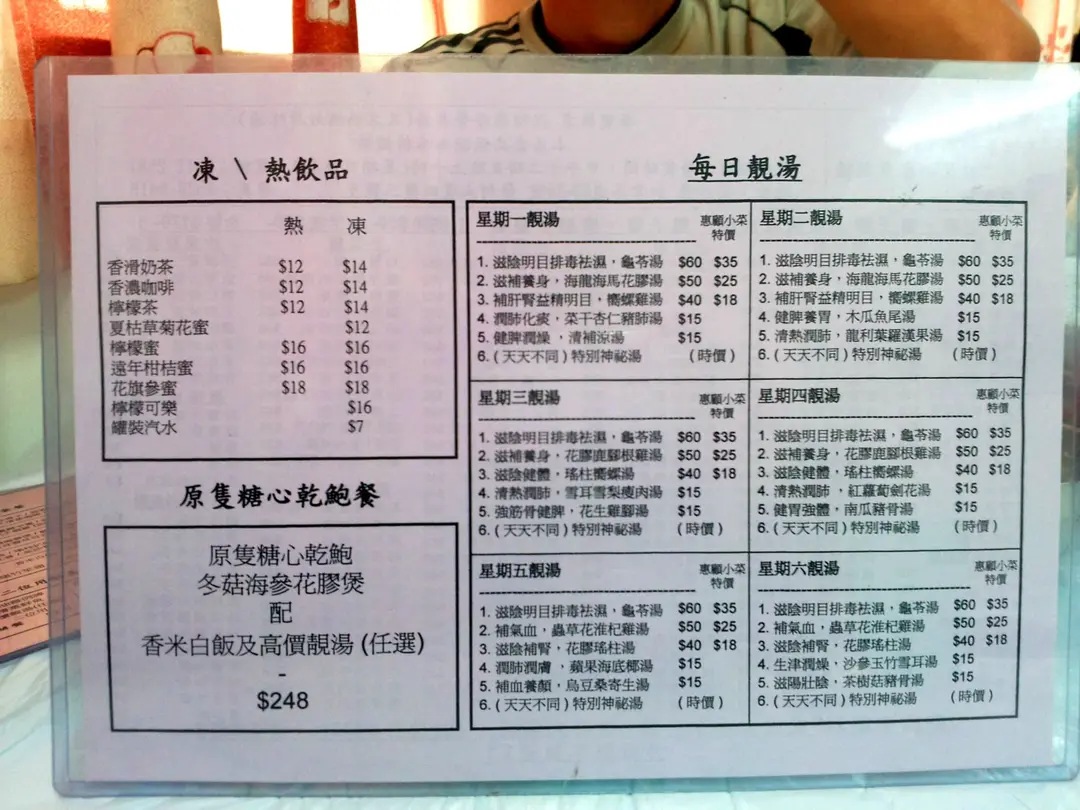 凍 \ 熱飲品
熱 凍
香滑奶茶 $12 $14
香濃咖啡 $12 $14
檸檬茶 $12 $14
夏枯草菊花蜜 $12
檸檬蜜 $16 $16
遠年柑桔蜜 $16 $16
花旗參蜜 $18 $18
檸檬可樂 $16
罐裝汽水 $7
原隻糖心乾鮑餐
原隻糖心乾鮑
冬菇海參花膠煲
配
香米白飯及高價靚湯 (任選)
-
$248
每日靚湯
星期一靚湯 惠顧小菜
特價
1. 滋陰明目排毒祛濕，龜苓湯 $60 $35
2. 滋補養身，海龍海馬花膠湯 $50 $25
3. 補肝腎益精明目，嚮螺雞湯 $40 $18
4. 潤肺化痰，菜干杏仁豬肺湯 $15
5. 健脾潤燥，清補涼湯 $15
6. ( 天天不同 ) 特別神祕湯 ( 時價 )
星期二靚湯 惠顧小菜
特價
1. 滋陰明目排毒祛濕，龜苓湯 $60 $35
2. 滋補養身，海龍海馬花膠湯 $50 $25
3. 補肝腎益精明目，嚮螺雞湯 $40 $18
4. 健脾養胃，木瓜魚尾湯 $15
5. 清熱潤肺，龍利葉羅漢果湯 $15
6. ( 天天不同 ) 特別神祕湯 ( 時價 )
星期三靚湯 惠顧小菜
特價
1. 滋陰明目排毒祛濕，龜苓湯 $60 $35
2. 滋補養身，花膠鹿腳根雞湯 $50 $25
3. 滋陰健體，瑤柱嚮螺湯 $40 $18
4. 清熱潤肺，雪耳雪梨瘦肉湯 $15
5. 強筋骨健脾，花生雞腳湯 $15
6. ( 天天不同 ) 特別神祕湯 ( 時價 )
星期四靚湯 惠顧小菜
特價
1. 滋陰明目排毒祛濕，龜苓湯 $60 $35
2. 滋補養身，花膠鹿腳根雞湯 $50 $25
3. 滋陰健體，瑤柱嚮螺湯 $40 $18
4. 清熱潤肺，紅蘿蔔劍花湯 $15
5. 健胃強體，南瓜豬骨湯 $15
6. ( 天天不同 ) 特別神祕湯 ( 時價 )
星期五靚湯 惠顧小菜
特價
1. 滋陰明目排毒祛濕，龜苓湯 $60 $35
2. 補氣血，蟲草花淮杞雞湯 $50 $25
3. 滋陰補腎，花膠瑤柱湯 $40 $18
4. 潤肺潤膚，蘋果海底椰湯 $15
5. 補血養顏，烏豆桑寄生湯 $15
6. ( 天天不同 ) 特別神祕湯 ( 時價 )
星期六靚湯 惠顧小菜
特價
1. 滋陰明目排毒祛濕，龜苓湯 $60 $35
2. 補氣血，蟲草花淮杞雞湯 $50 $25
3. 滋陰補腎，花膠瑤柱湯 $40 $18
4. 生津潤燥，沙參玉竹雪耳湯 $15
5. 滋陽壯陰，茶樹菇豬骨湯 $15
6. ( 天天不同 ) 特別神祕湯 ( 時價 )